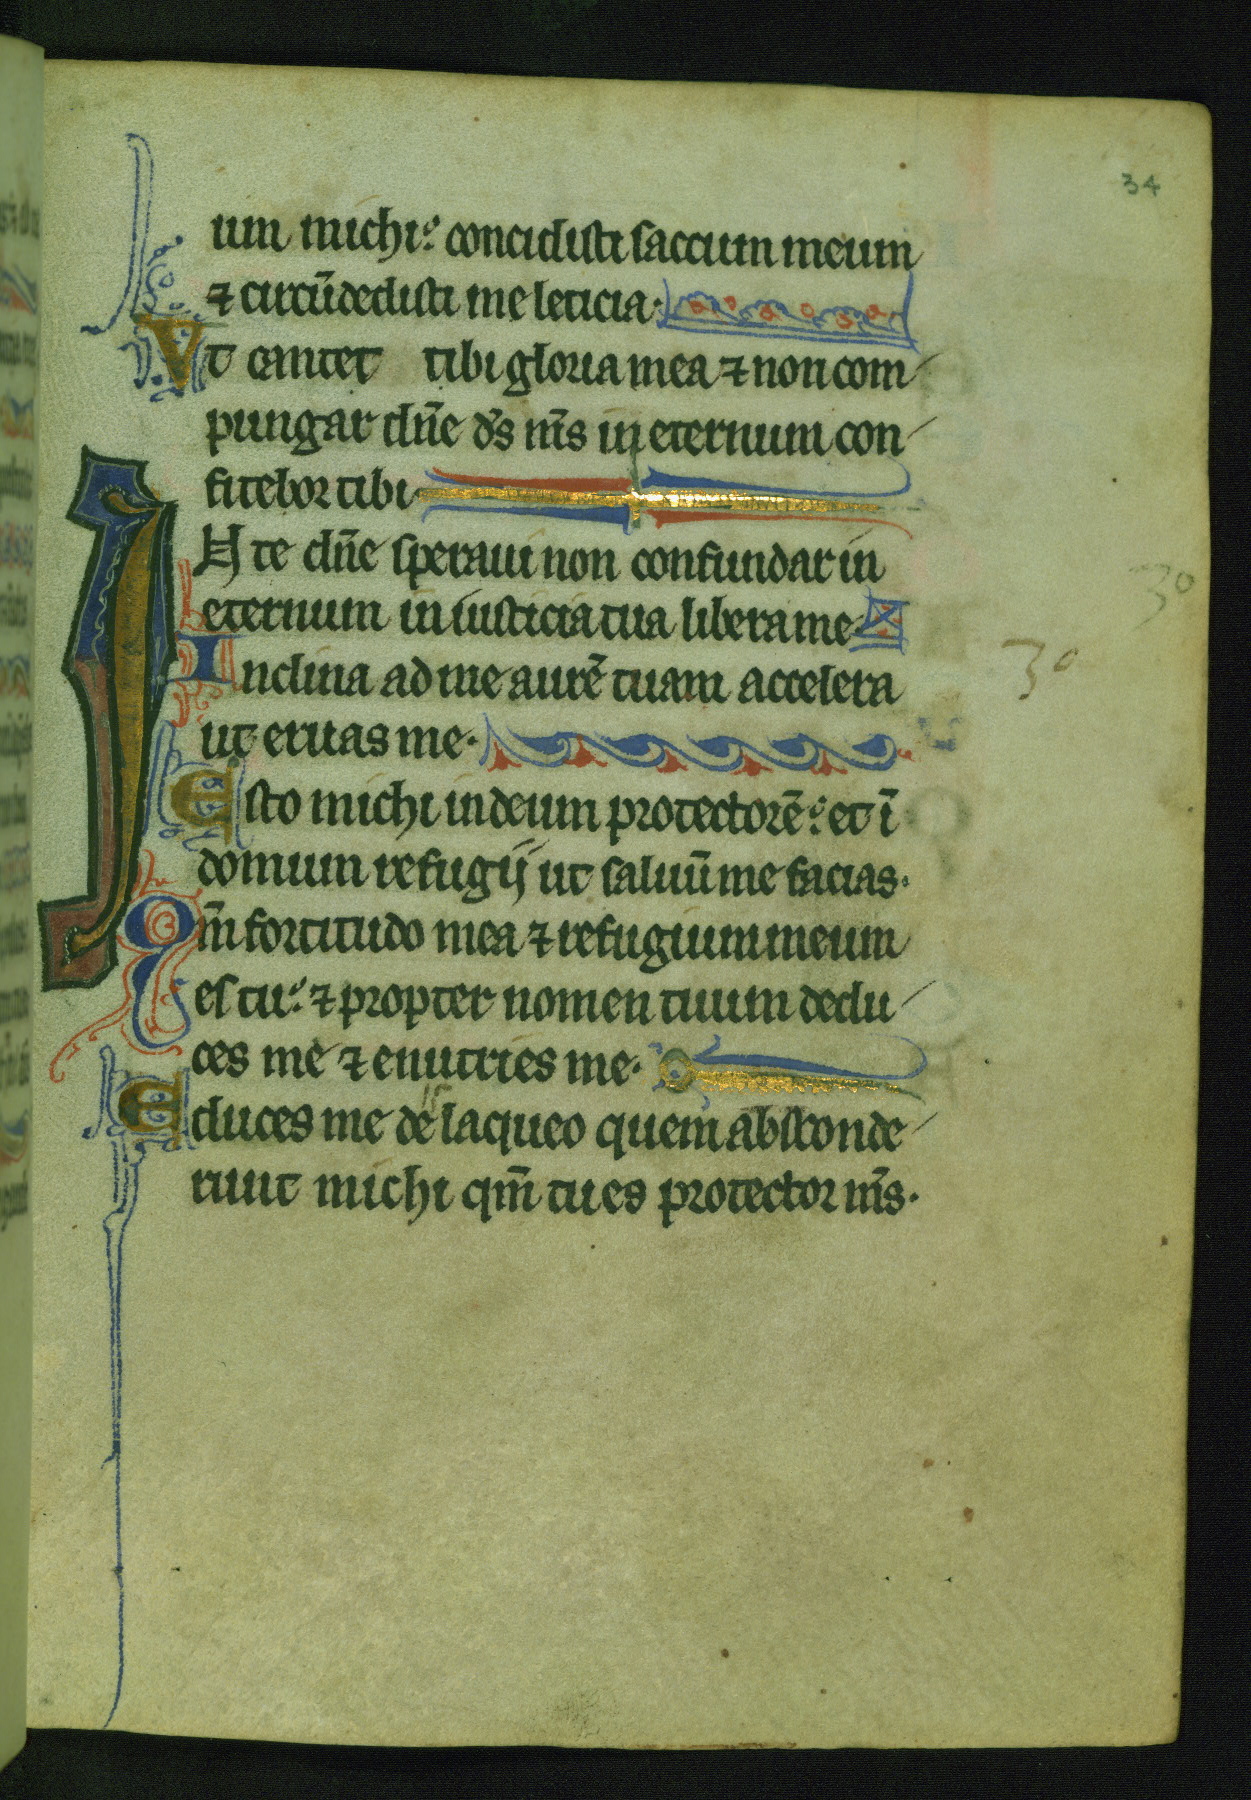 34
um michi: concidisti saccum meum
⁊ circūdedisti me leticia.
Vt cantet tibi gloria mea ⁊ non com
pungar dn̄e ds̄ ms̄ in eternum con
fitebor tibi
IN te dn̄e speraui non confundar in
eternum in iusticia tua libera me
30
Inclina ad me aurē tuam accelera
30
ut eruas me.
Esto michi in deum protectorē: et ī
domum refugij ut saluū me facias.
Qm̄ fortitudo mea ⁊ refugium meum
es tu: ⁊ propter nomen tuum dedu
ces me ⁊ enutries me.
Educes me de laqueo quem absconde
runt michi qm̄ tu es protector ms̄.